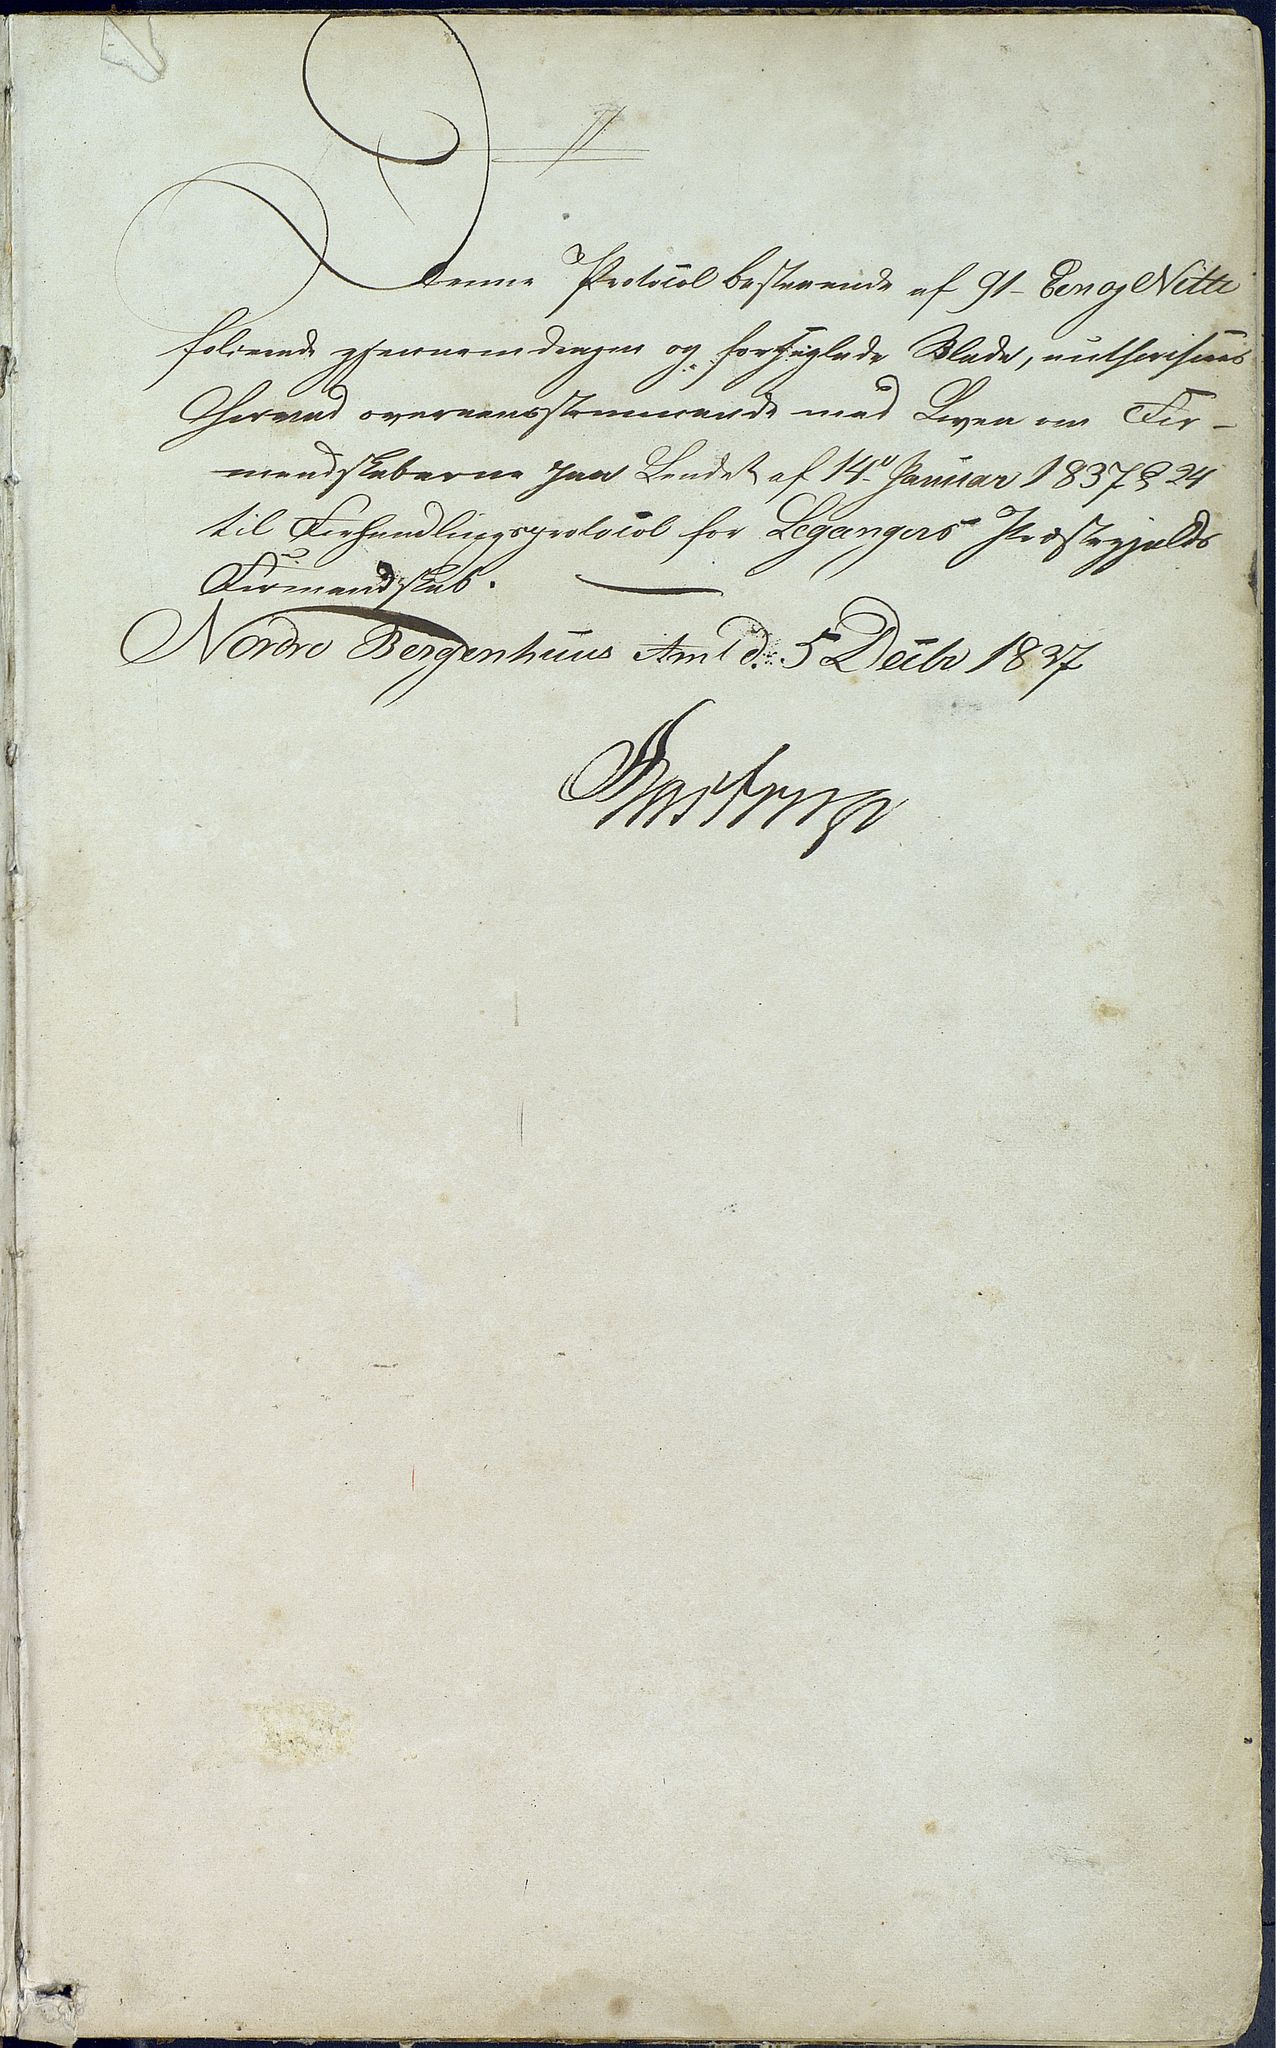 Denne Protocol bestaaende af 91- Een og Nitti
folierede gjennemdragne og forseglede Blade, authoriseres
herved overeensstemmende med Loven om For-
mandskaberne paa Landet af 14de Januar 1837 § 24
til Forhandlingsprotocol for Leganger Præstegjelds
Formandskab.
Nordre Bergenhuus Amt d. 5 Decbr 1837